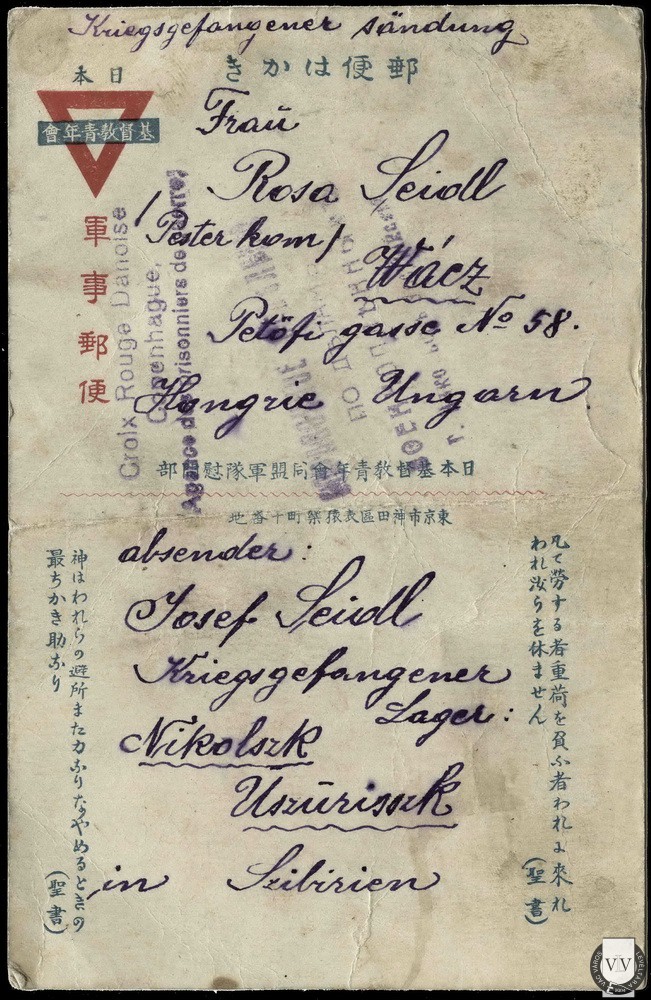 Kriegsgefangener sändung
郵便はかき
日本
基督教青年會
軍事郵便
Fraü
Rosa Seidl
/Pester kom/
Wácz
Petőfi gasse No 58.
Hongrie Ungarn.
Croix Rouge Danoise
Copenhague,
Agence des prisonniers de guerre
日本基督教青年會同盟軍隊慰問部
東京市神田區表猿樂町十番地
absender:
Josef Seidl
Kriegsgefangener
Lager:
Nikolszk
Uszüriszk
in Szibirien
凡て勞する者重荷を負ふ者われに來れ
われ汝らを休ません
(聖書)
神はわれらの避所また力なりなやめるときの
最ちかき助なり
(聖書)
VÁC VÁROS LEVÉLTÁRA